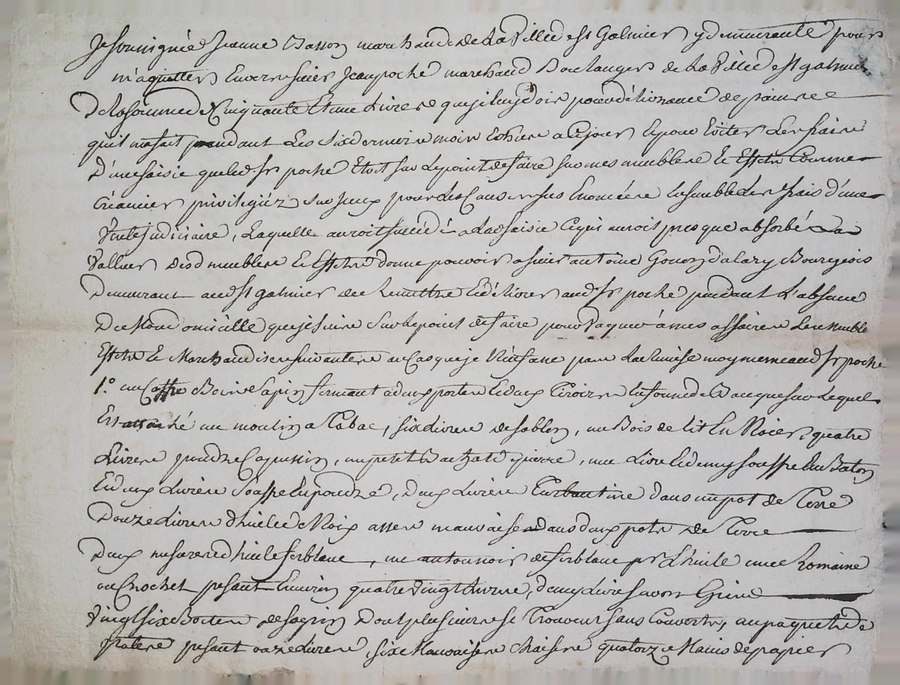 Je soussignée Jeanne Basson marchande de La Ville de st Galmier y demeurante pour
m'aquitter Envers sieur Jean poche marchand Boulanger de La Ville de st galmier
De la somme de Cinquante Et une Livre que je luy dois pour délivrance de pain
qu'il m'a fait pendant Les six derniers mois Echeu a Ce jour Et pour Eviter Les frais
D'une saisie que led sr poche Etoit sur Le point de faire sur mes meubles Et Effets Comme
Créancier privilegiéz sur jceux pour Les Causes sus Enoncée Ensemble Les frais d'une
Vente judiciaire, Laquelle auroit succédé à Lad saisie Et qui auroit presque absorbé La
Valleur desd meubles Et Effets donne pouvoir a sieur antoine Gonon Bourgeois
Demeurant aud st galmier de Remettre Et délivrer aud sr poche pendant L'absence
De mon domicille que je suis Sur Le point de faire pour vaquer à mes affaires Les meubles
Effets Et Marchandises suivantes au Cas que je n'En fasse pas La Remise moy meme aud sr poche
1° un Coffre Bois Sapin fermant a deux portes Et deux Tiroirs Duquel
Est attaché un moulin a Tabac, six Livres de sablon, un Bois de Lit En Noier, quatre
Livres poudre Capussin, un petit , une Livre Et demy souffre En Baton
Et deux Livres Souffre En poudre, Deux Livres Turbantine dans un pot de Terre
Douze Livres d'huile de Noix assés mauvaise dans deux pots de Terre
Deux mesures d'huile fer blanc, un antonoir de fer blanc pr L'huile une Romaine
ou Crochet pesant Environ quatre vingt Livres, deux Livres savon
Vingt six Boetes de sapin Dont plusieurs se Trouvent sans Couverts, un paquet de
pesant onze Livres six Mauvaises Chaises quatorze Mains de papier